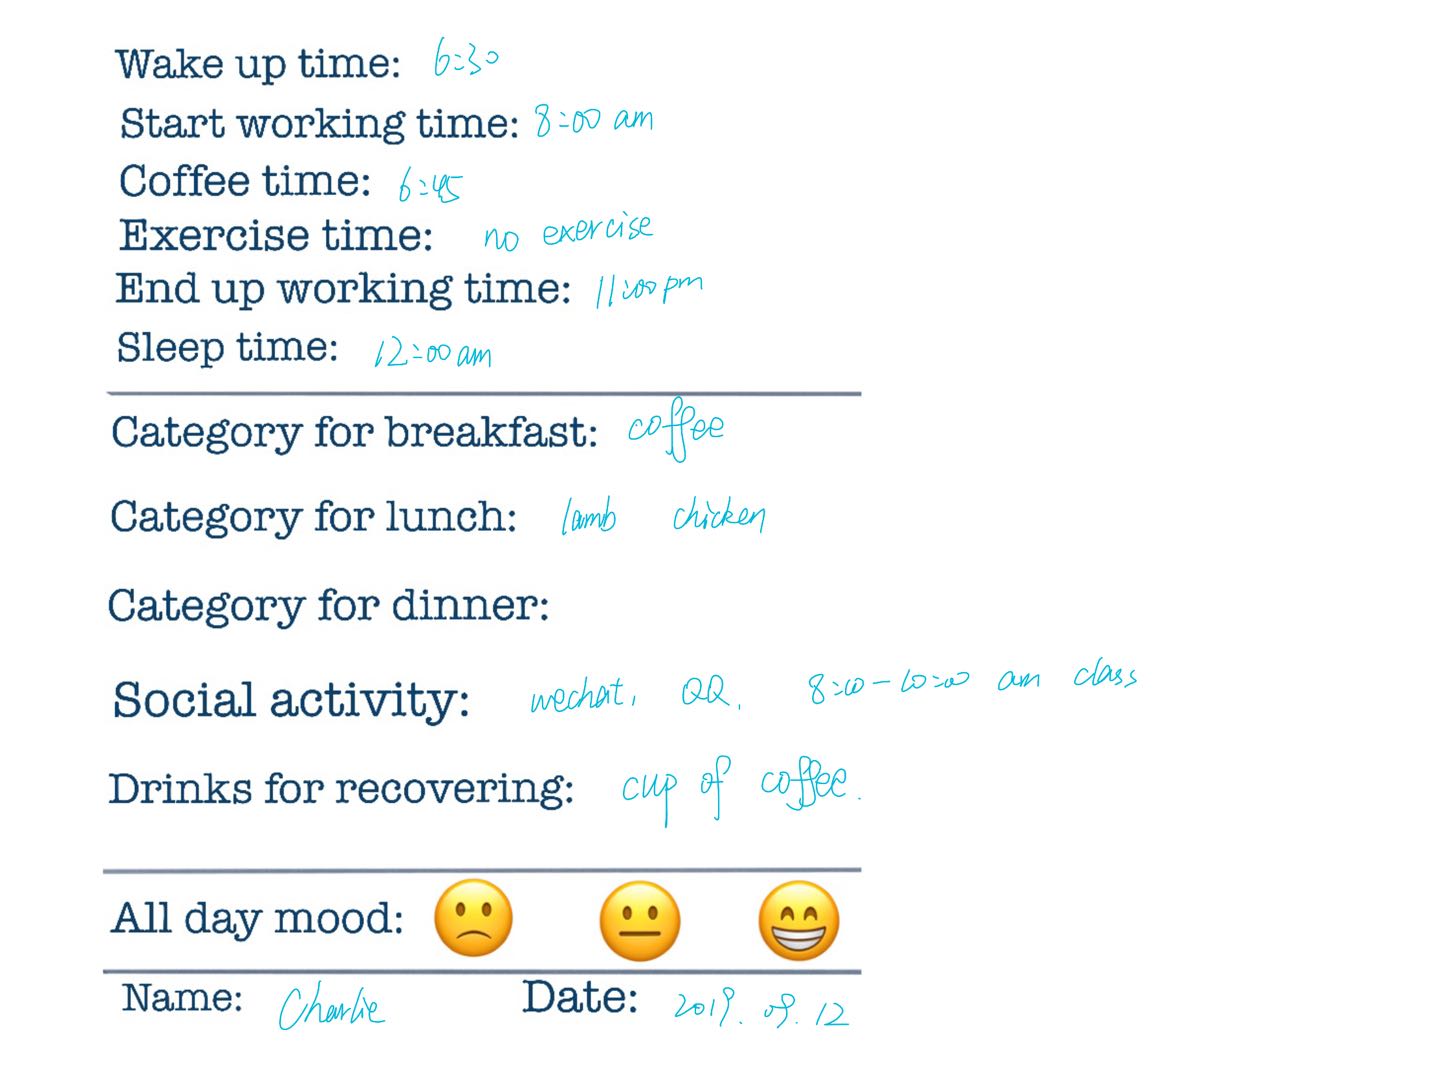 Wake up time: 6:30
Start working time: 8:00 am
Coffee time: 6:45
Exercise time: no exercise
End up working time: 11:00 pm
Sleep time: 12:00 am
Category for breakfast: coffee
Category for lunch: lamb chicken
Category for dinner:
Social activity: wechat, QQ, 8:00-10:00 am class
Drinks for recovering: cup of coffee.
All day mood:
Name: Charlie Date: 2019.09.12